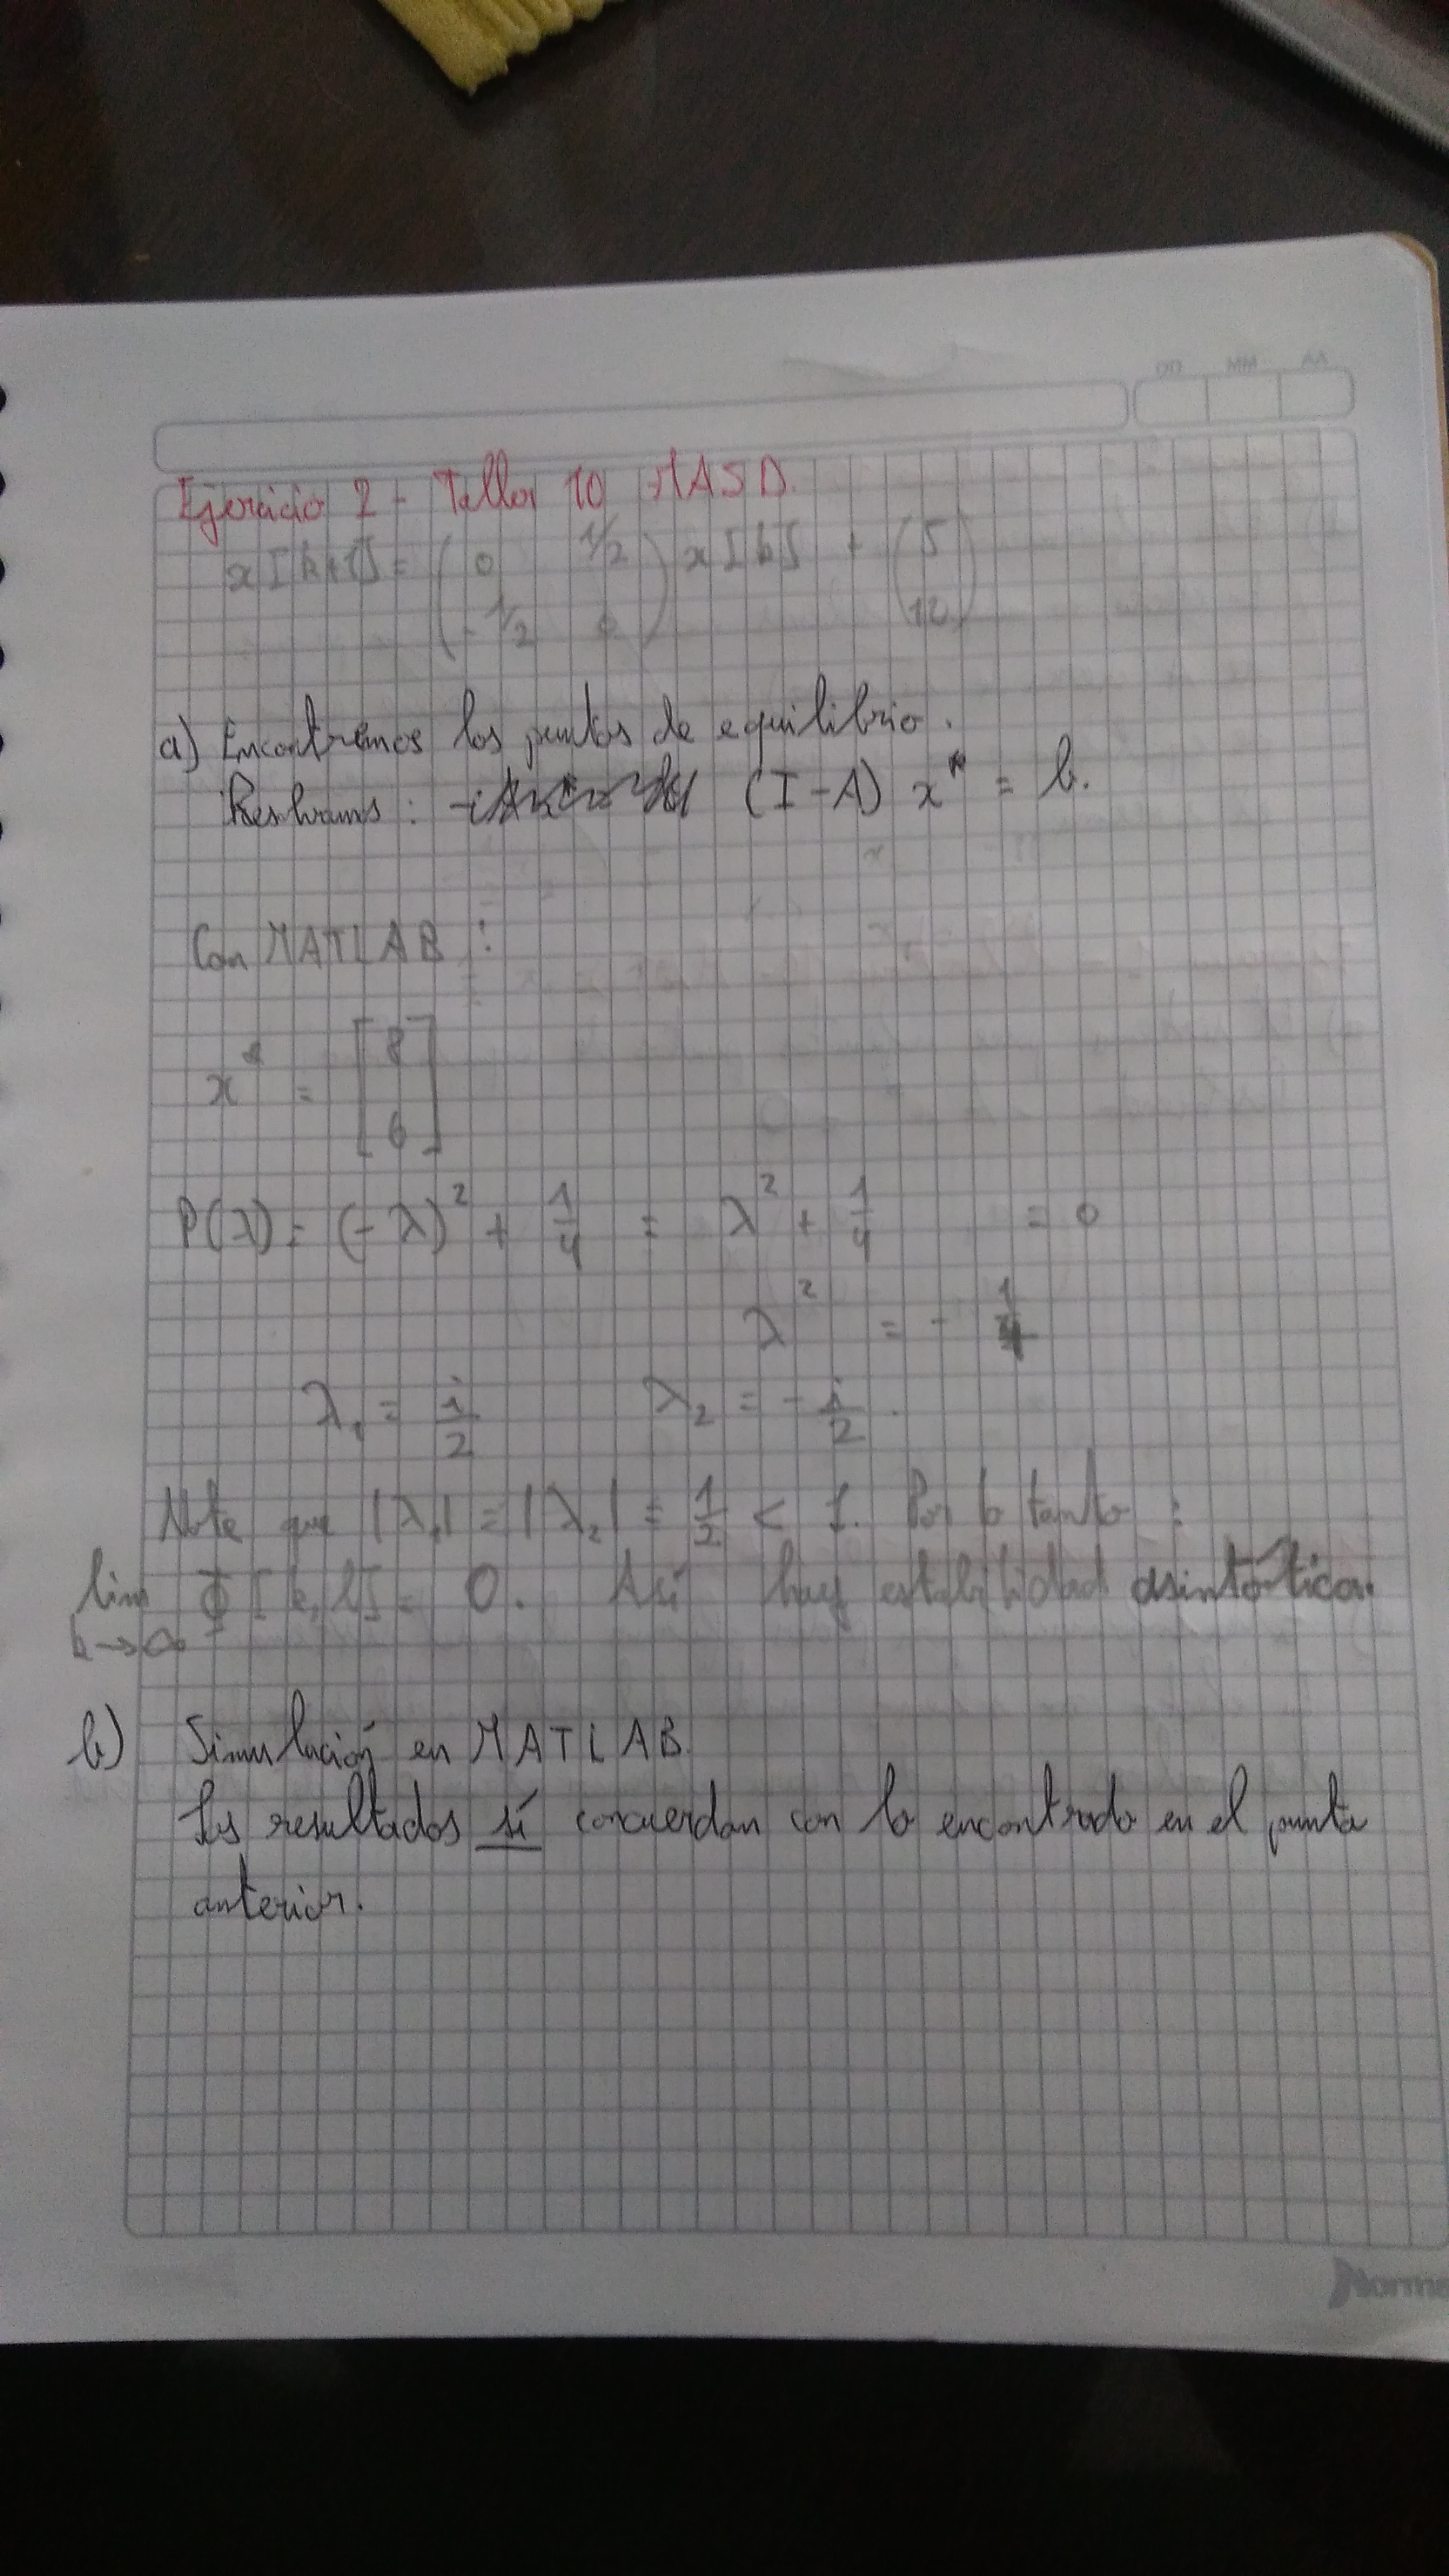 DD MM AA
Ejercicio 2 - Taller 10 MASD.
x[k+1] = ( 0 1/2 ) x[k] + ( 5 )
( -1/2 0 ) ( 10 )
a) Encontremos los puntos de equilibrio.
Resolvamos: (I-A) x* = b.
Con MATLAB:
x* = [ 8
6 ]
P(λ) = (-λ)² + 1/4 = λ² + 1/4 = 0
λ² = - 1/4
λ₁ = i/2 λ₂ = - i/2.
Note que |λ₁| = |λ₂| = 1/2 < 1. Por lo tanto:
lim k→∞ Φ[k,l] = 0. Así hay estabilidad asintótica.
b) Simulación en MATLAB.
Los resultados sí concuerdan con lo encontrado en el punto
anterior.
Norma